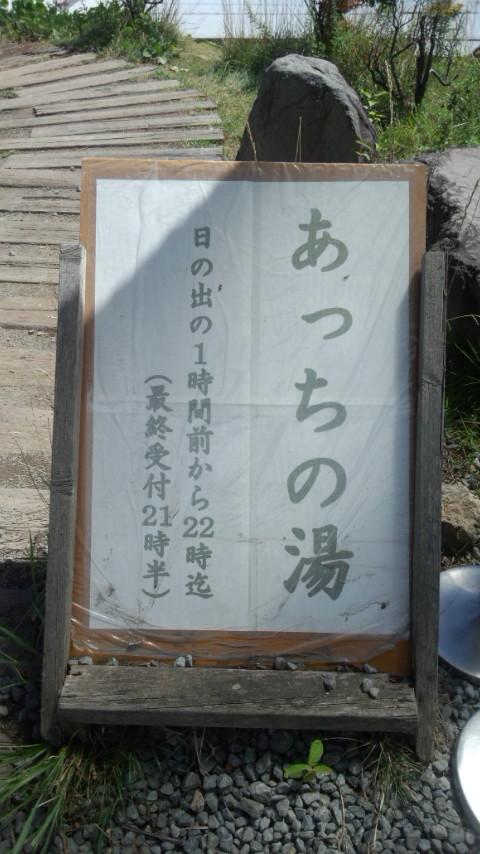 あっちの湯
日の出の1時間前から22時迄
（最終受付21時半）